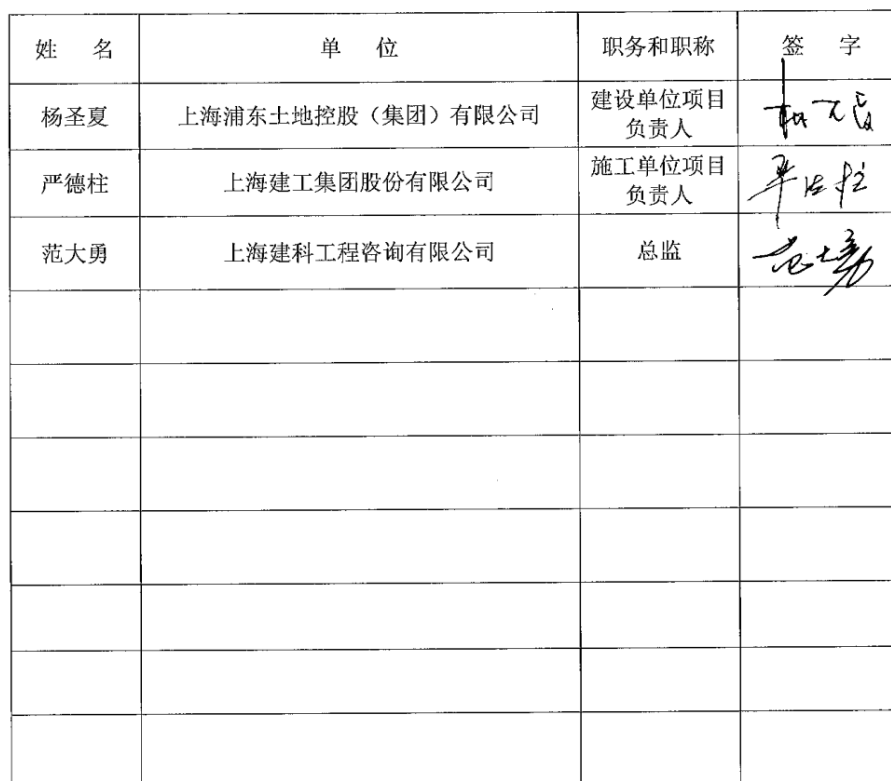 姓 名 单 位 职务和职称 签 字
杨圣夏 上海浦东土地控股（集团）有限公司 建设单位项目
负责人
严德柱 上海建工集团股份有限公司 施工单位项目
负责人 严德柱
范大勇 上海建科工程咨询有限公司 总监 范大勇